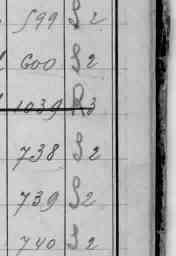 599 S 2
600 S 2
1039 R 3
738 S 2
739 S 2
740 S 2